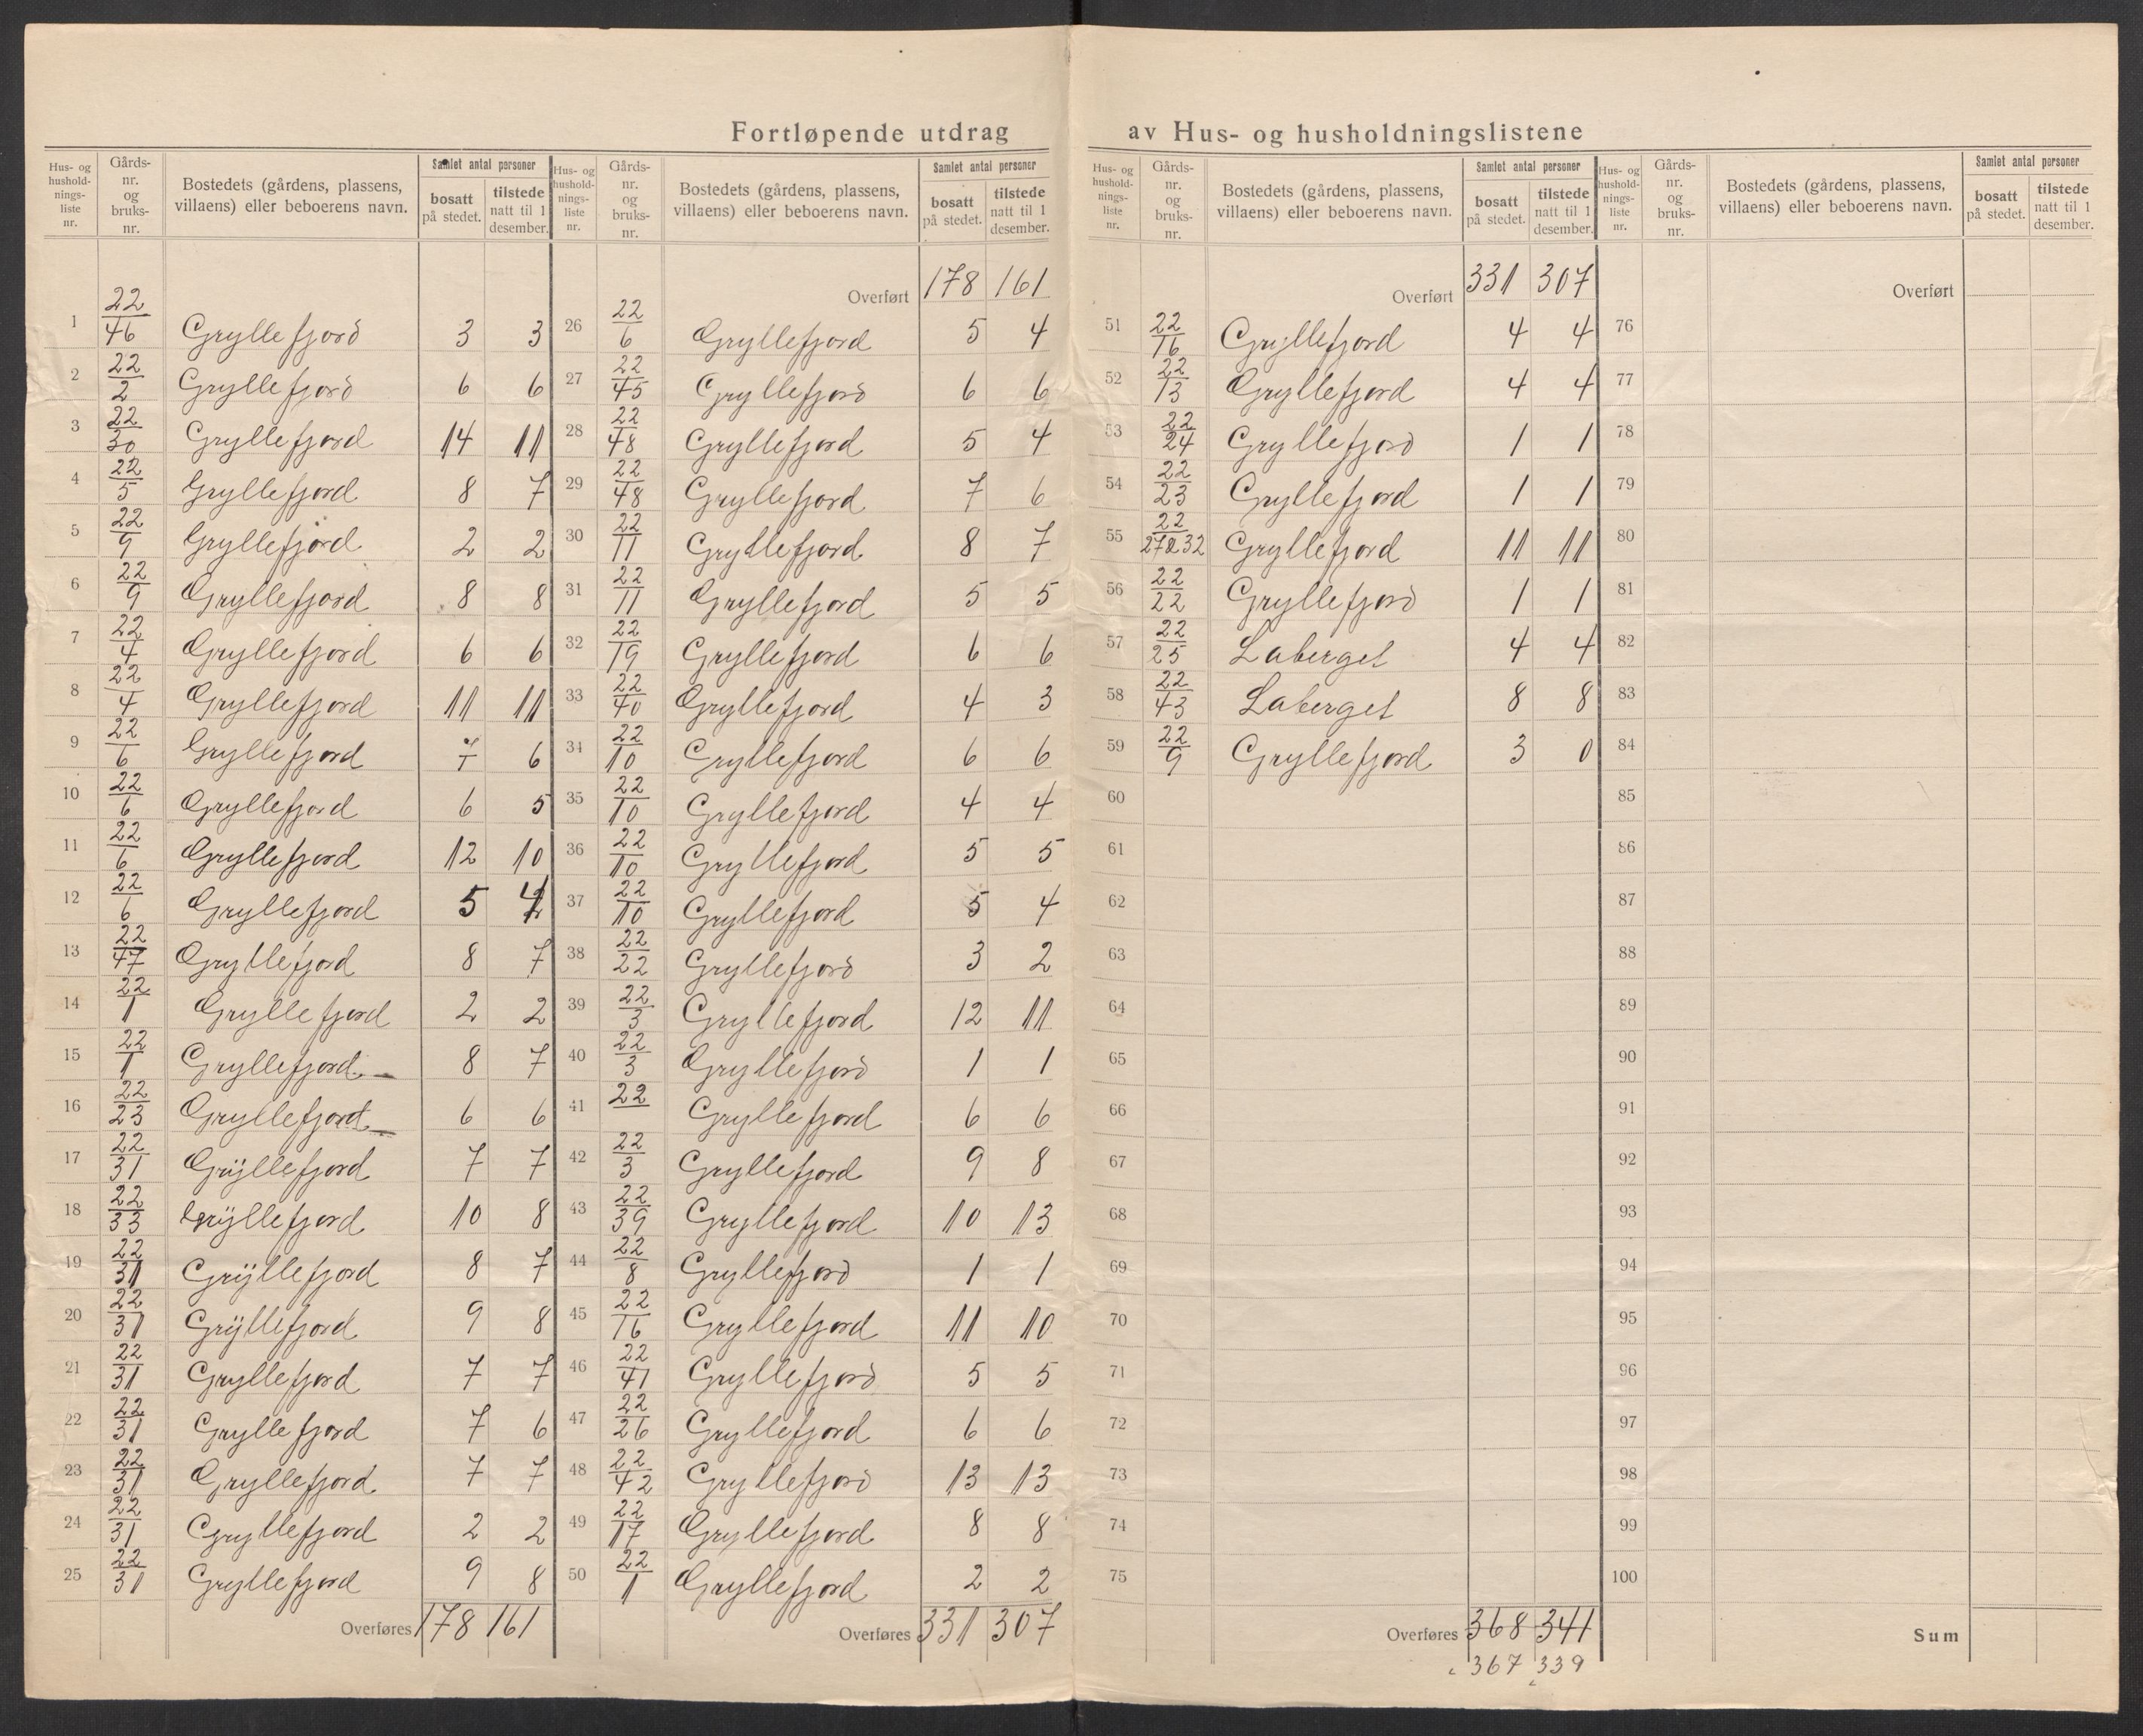 Fortløpende utdrag av Hus- og husholdningslistene
Hus- og husholdningsliste nr. | Gårds- nr. og bruks- nr. | Bostedets (gårdens, plassens, villaens) eller beboerens navn. | Samlet antal personer: bosatt på stedet. | tilstede natt til 1 desember.
1 22/46 Gryllefjord 3 3
2 22/2 Gryllefjord 6 6
3 22/30 Gryllefjord 14 11
4 22/5 Gryllefjord 8 7
5 22/9 Gryllefjord 2 2
6 22/9 Gryllefjord 8 8
7 22/4 Gryllefjord 6 6
8 22/4 Gryllefjord 11 11
9 22/6 Gryllefjord 7 6
10 22/6 Gryllefjord 6 5
11 22/6 Gryllefjord 12 10
12 22/6 Gryllefjord 5 4
13 22/47 Gryllefjord 8 7
14 22/1 Gryllefjord 2 2
15 22/1 Gryllefjord 8 7
16 22/23 Gryllefjord 6 6
17 22/31 Gryllefjord 7 7
18 22/33 Gryllefjord 10 8
19 22/31 Gryllefjord 8 7
20 22/31 Gryllefjord 9 8
21 22/31 Gryllefjord 7 7
22 22/31 Gryllefjord 7 6
23 22/31 Gryllefjord 7 7
24 22/31 Gryllefjord 2 2
25 22/31 Gryllefjord 9 8
Overføres 178 161
Hus- og husholdningsliste nr. | Gårds- nr. og bruks- nr. | Bostedets (gårdens, plassens, villaens) eller beboerens navn. | Samlet antal personer: bosatt på stedet. | tilstede natt til 1 desember.
Overført 178 161
26 22/6 Gryllefjord 5 4
27 22/45 Gryllefjord 6 6
28 22/48 Gryllefjord 5 4
29 22/48 Gryllefjord 7 6
30 22/11 Gryllefjord 8 7
31 22/11 Gryllefjord 5 5
32 22/19 Gryllefjord 6 6
33 22/40 Gryllefjord 4 3
34 22/10 Gryllefjord 6 6
35 22/10 Gryllefjord 4 4
36 22/10 Gryllefjord 5 5
37 22/10 Gryllefjord 5 4
38 22/22 Gryllefjord 3 2
39 22/3 Gryllefjord 12 11
40 22/3 Gryllefjord 1 1
41 22 Gryllefjord 6 6
42 22/3 Gryllefjord 9 8
43 22/39 Gryllefjord 10 13
44 22/8 Gryllefjord 1 1
45 22/16 Gryllefjord 11 10
46 22/41 Gryllefjord 5 5
47 22/26 Gryllefjord 6 6
48 22/42 Gryllefjord 13 13
49 22/17 Gryllefjord 8 8
50 22/1 Gryllefjord 2 2
Overføres 331 307
Hus- og husholdningsliste nr. | Gårds- nr. og bruks- nr. | Bostedets (gårdens, plassens, villaens) eller beboerens navn. | Samlet antal personer: bosatt på stedet. | tilstede natt til 1 desember.
Overført 331 307
51 22/16 Gryllefjord 4 4
52 22/13 Gryllefjord 4 4
53 22/24 Gryllefjord 1 1
54 22/23 Gryllefjord 1 1
55 22/27&32 Gryllefjord 11 11
56 22/22 Gryllefjord 1 1
57 22/25 Laberget 4 4
58 22/43 Laberget 8 8
59 22/9 Gryllefjord 3 0
60
61
62
63
64
65
66
67
68
69
70
71
72
73
74
75
Overføres 368 341
367 339
Hus- og husholdningsliste nr. | Gårds- nr. og bruks- nr. | Bostedets (gårdens, plassens, villaens) eller beboerens navn. | Samlet antal personer: bosatt på stedet. | tilstede natt til 1 desember.
Overført
76
77
78
79
80
81
82
83
84
85
86
87
88
89
90
91
92
93
94
95
96
97
98
99
100
Sum